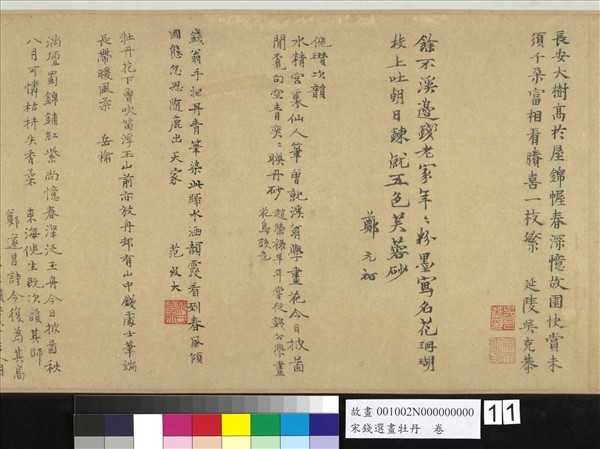 長安大樹高於屋錦幄春深憶故園快賞未
須千朶富相看賸喜一枝繁 延陵吳克恭
餘不溪邊錢老家年〻粉墨寫名花珊瑚
枝上吐朝日鍊就五色芙蓉砂
鄭元祐
倪瓚次韻
水精宮裏仙人筆曾就溪翁學畫花今日披圖
聞看向空青奕〻映丹砂
趙榮祿早年嘗從錢公學畫
花鳥故云
錢翁手把丹青筆染此綠水涵頳霞看到春風傾
國態忽思随鹿出天家 范致大
牡丹花下曾吹笛浮玉山前亦放舟却有山中錢處士筆端
長帶暖風柔 岳榆
滿壇蜀錦鋪紅紫尚憶春深泛玉舟今日披圖秋
八月可憐枯持失香柔
東海倪生既次韻其師
鄭遂昌詩今復為其寫
故畫 001002N000000000
宋錢選畫牡丹 卷
11